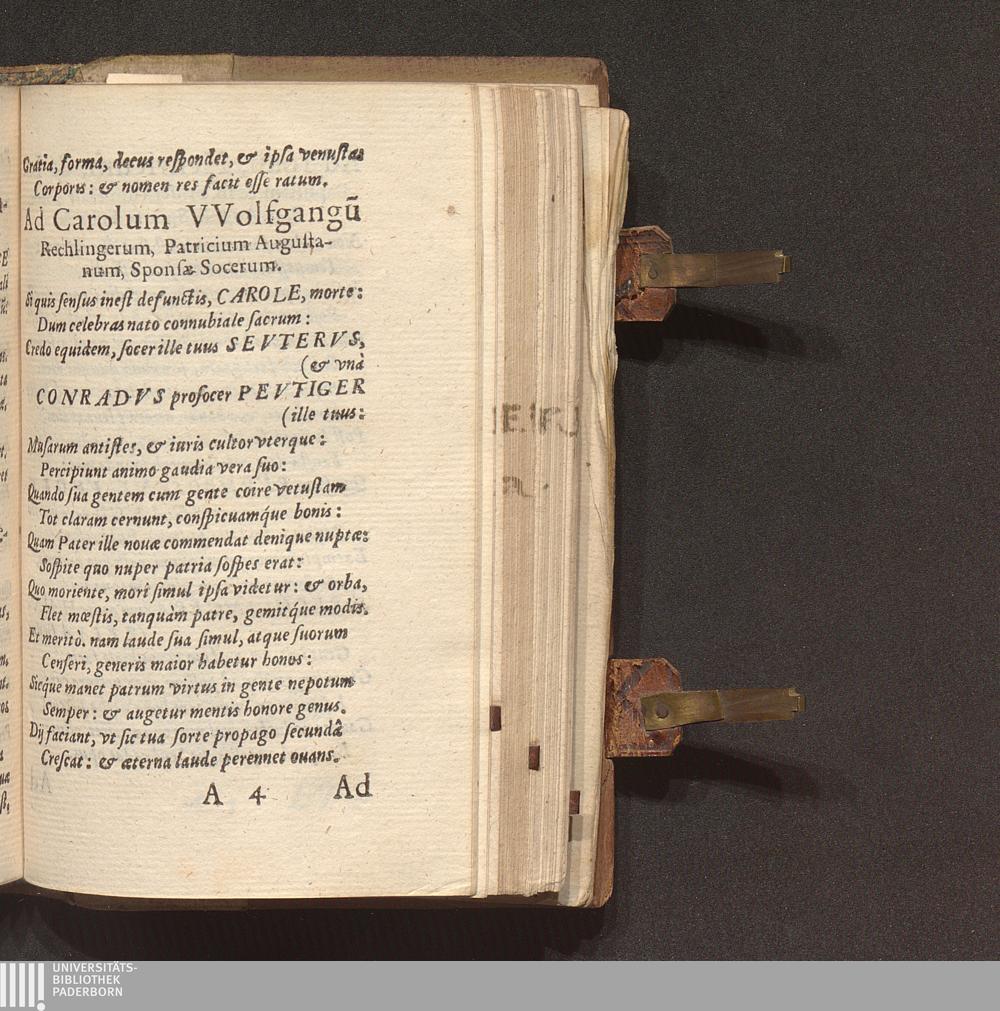 Gratia, forma, decus respondet, & ipsa venustas
Corporis: & nomen res facit esse ratum.
Ad Carolum VVolfgangũ
Rechlingerum, Patricium Augusta-
num, Sponsæ Socerum.
Si quis sensus inest defunctis, CAROLE, morte:
Dum celebras nato connubiale sacrum:
Credo equidem, socer ille tuus SEVTERVS,
(& vnà
CONRADVS prosocer PEVTIGER
(ille tuus:
Musarum antistes, & iuris cultor vterque:
Percipiunt animo gaudia vera suo:
Quando sua gentem cum gente coire vetustam
Tot claram cernunt, conspicuamq́ue bonis:
Quam Pater ille nouæ commendat denique nuptæ:
Sospite quo nuper patria sospes erat:
Quo moriente, mori simul ipsa videtur: & orba,
Flet mœstis, tanquàm patre, gemitq́ue modis.
Et meritò. nam laude sua simul, atque suorum
Censeri, generis maior habetur honos:
Sicq́ue manet patrum virtus in gente nepotum
Semper: & augetur mentis honore genus.
Dij faciant, vt sic tua sorte propago secundâ
Crescat: & æterna laude perennet ouans.
A 4 Ad
UNIVERSITÄTS-
BIBLIOTHEK
PADERBORN